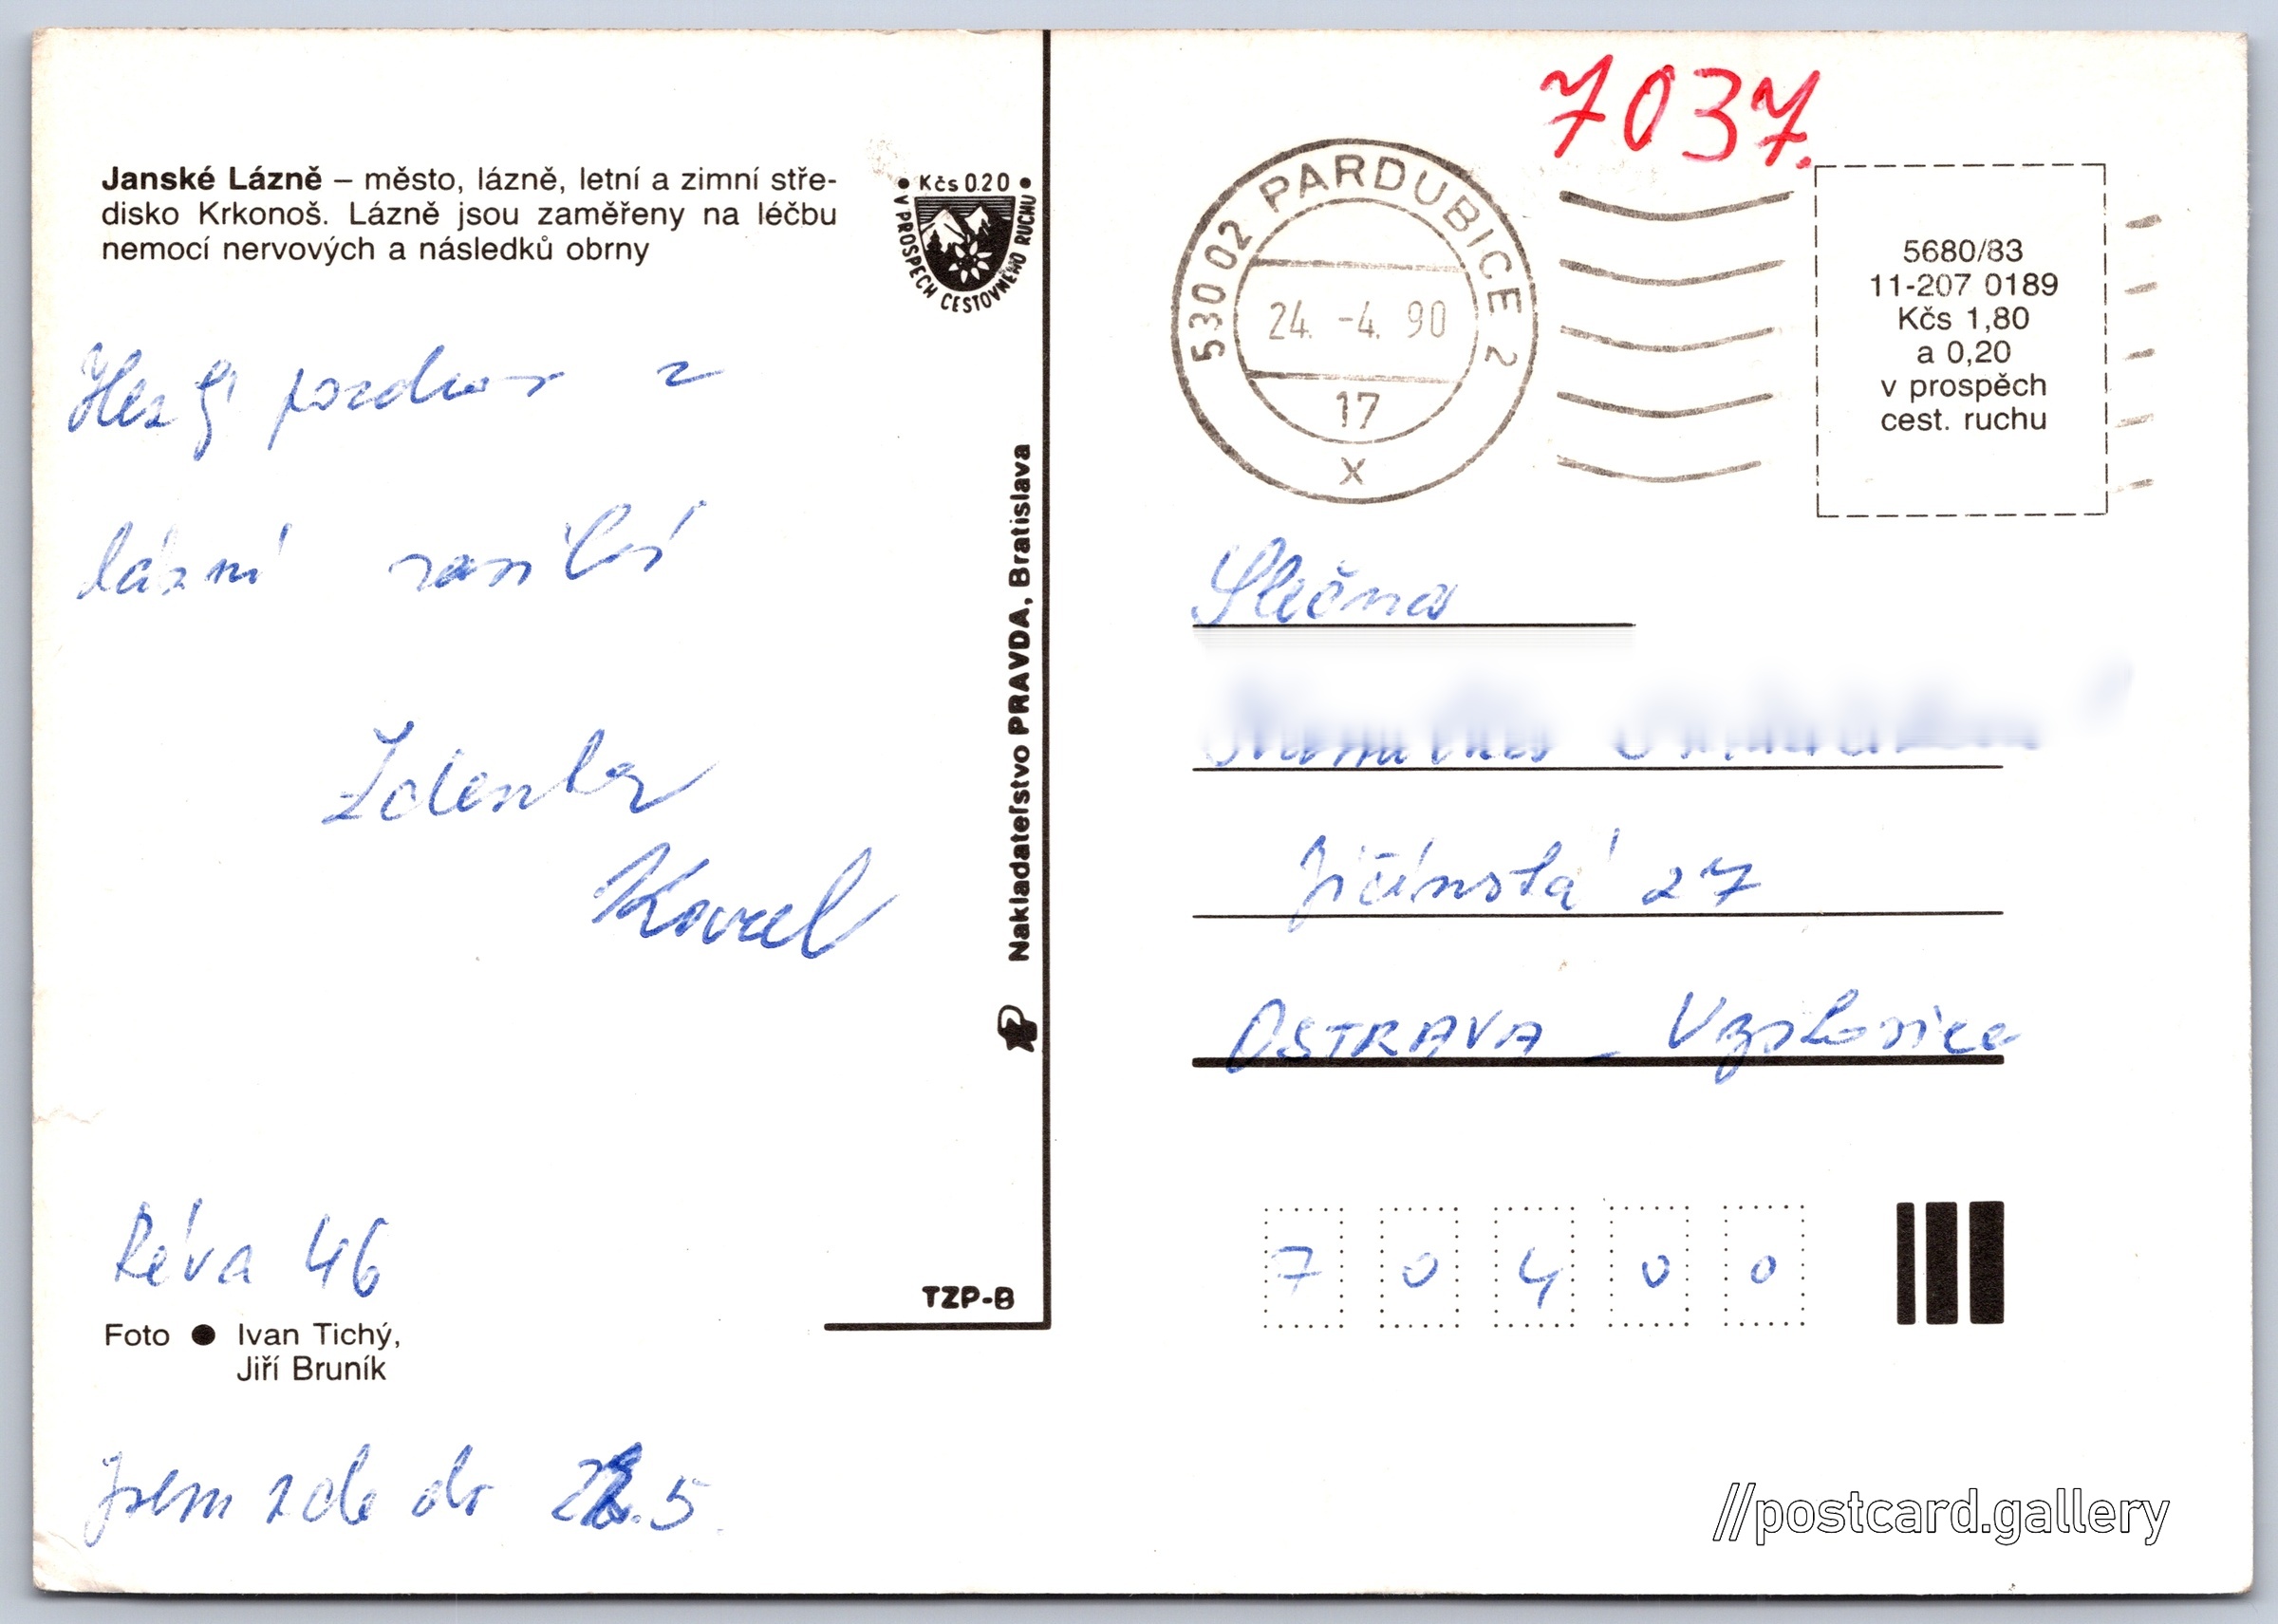 Janské Lázně – město, lázně, letní a zimní stře-
disko Krkonoš. Lázně jsou zaměřeny na léčbu
nemocí nervových a následků obrny
• Kčs 0.20 •
V PROSPECH CESTOVNÉHO RUCHU
pozdrav z
lázní
Zdenka
Réva 46
Foto ● Ivan Tichý,
Jiří Bruník
Jsem zde do
.5.
Nakladateľstvo PRAVDA, Bratislava
TZP-B
7037.
530 02 PARDUBICE 2
24. -4. 90
17
x
5680/83
11-207 0189
Kčs 1,80
a 0,20
v prospěch
cest. ruchu
Slečna
Jičínská 27
OSTRAVA –
70400
//postcard.gallery